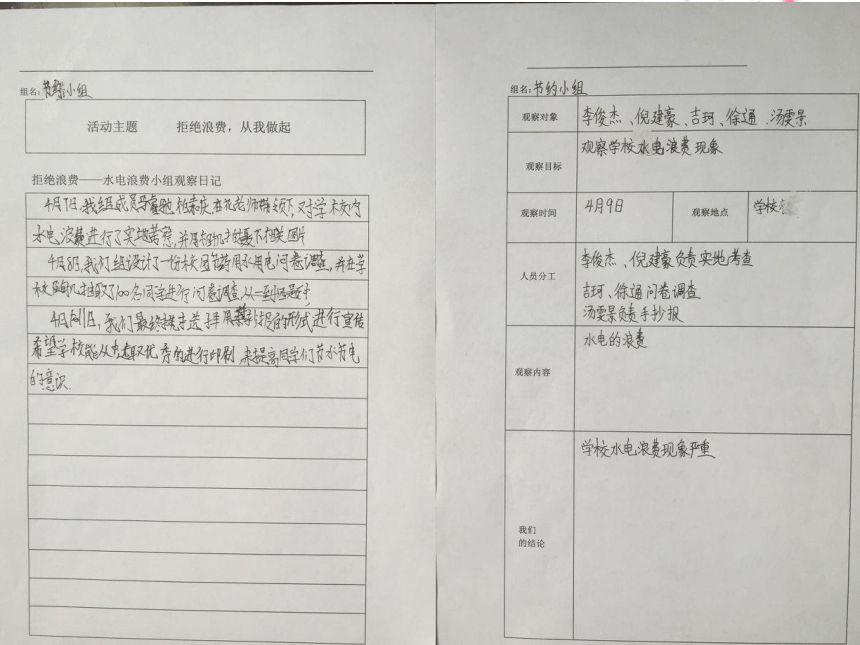 组名:节约小组
活动主题 拒绝浪费，从我做起
拒绝浪费——水电浪费小组观察日记
4月7日,我组成员马 在 老师带领下,对学校内
水电浪费进行了实地考察,并用相机拍摄下相关图片
4月8日,我们组设计了一份校园节约用水用电问卷调查,并在学
校随机抽取了100名同学进行问卷调查,从一到
4月11日,我们最终选择用手抄报的形式进行宣传
希望学校能从中选取优秀的进行印刷,来提高同学们节水节电
的意识.
组名:节约小组
观察对象 李俊杰、倪建豪、吉珂、徐通、汤雯景
观察目标 观察学校水电浪费现象
观察时间 4月9日 观察地点 学校
人员分工 李俊杰、倪建豪负责实地考查
吉珂、徐通问卷调查
汤雯景负责手抄报
观察内容 水电的浪费
我们
的结论 学校水电浪费现象严重